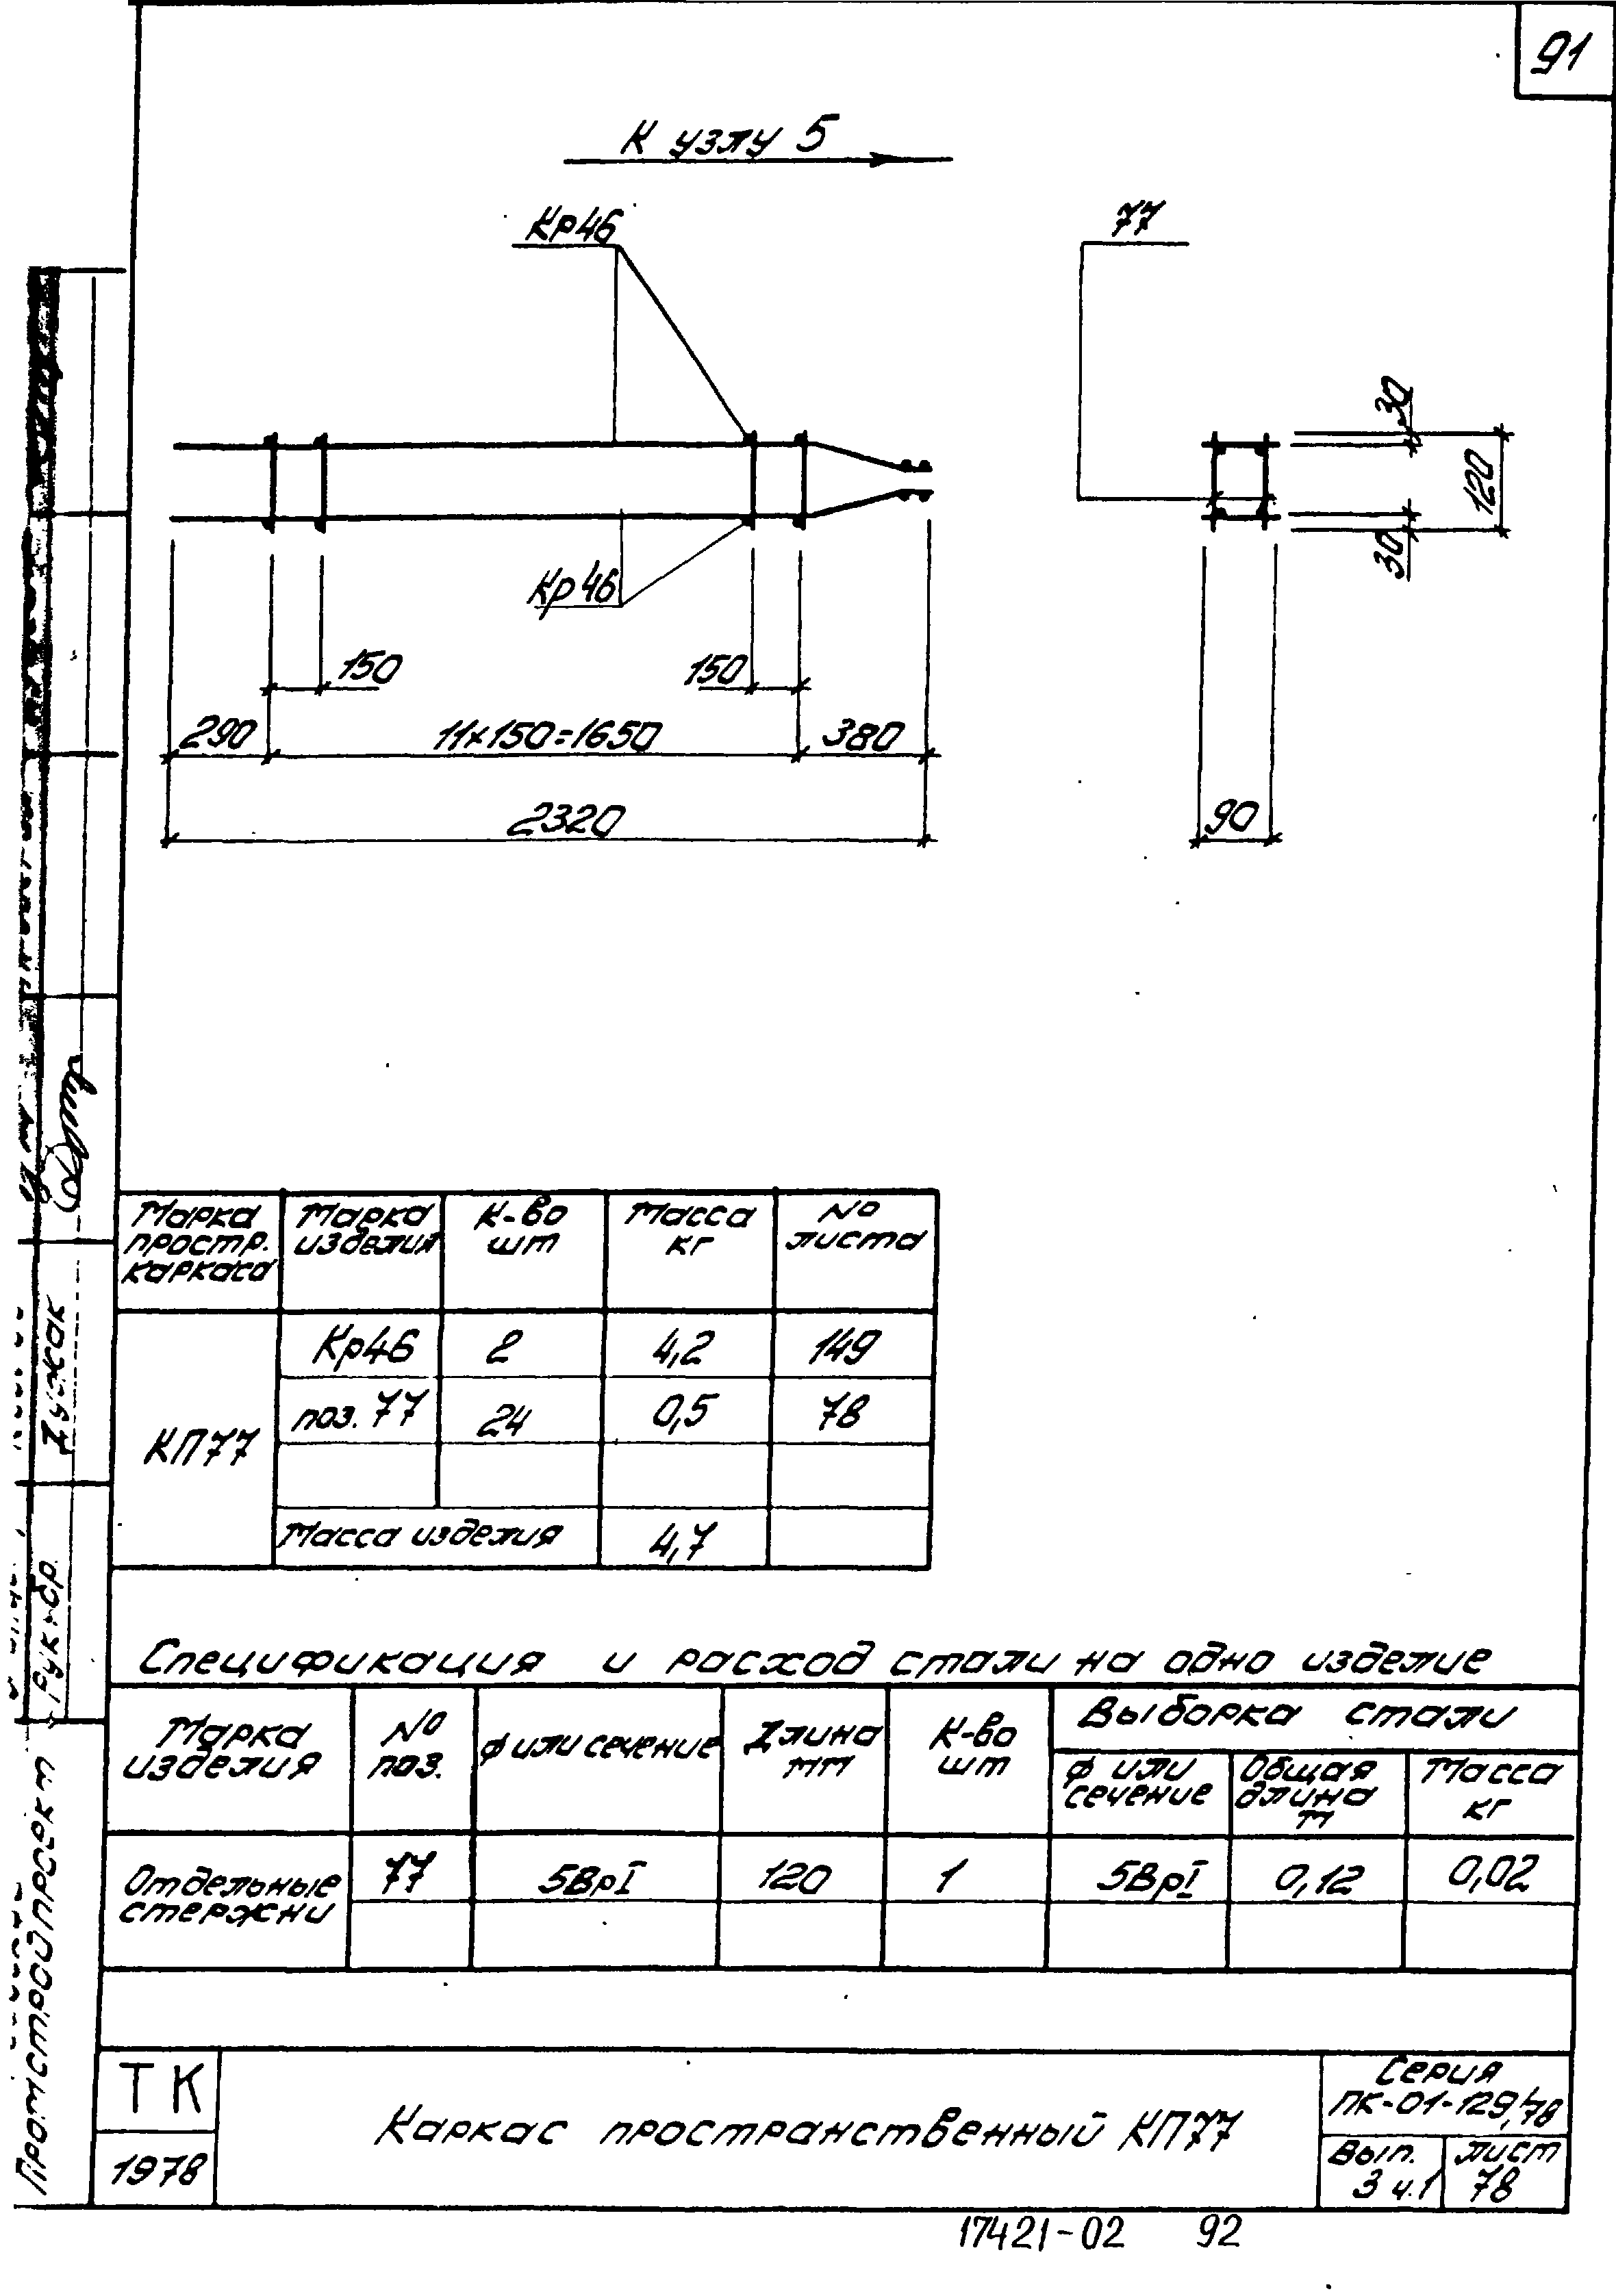 91
К узлу 5
Кр46
77
30
120
30
Кр46
150
150
290
11×150=1650
380
2320
90
Марка простр. каркаса
Марка изделия
К-во шт
Масса кг
№ листа
КП77
Кр46 2 4,2 149
поз. 77 24 0,5 78
Масса изделия 4,7
Спецификация и расход стали на одно изделие
Марка изделия
№ поз.
ф или сечение
Длина мм
К-во шт
Выборка стали
ф или сечение
Общая длина м
Масса кг
Отдельные стержни
77 5ВрI 120 1 5ВрI 0,12 0,02
ТК
1978
Каркас пространственный КП77
Серия
ПК-01-129/78
Вып.
3 ч.1
лист
78
17421-02 92
Рук. бр.